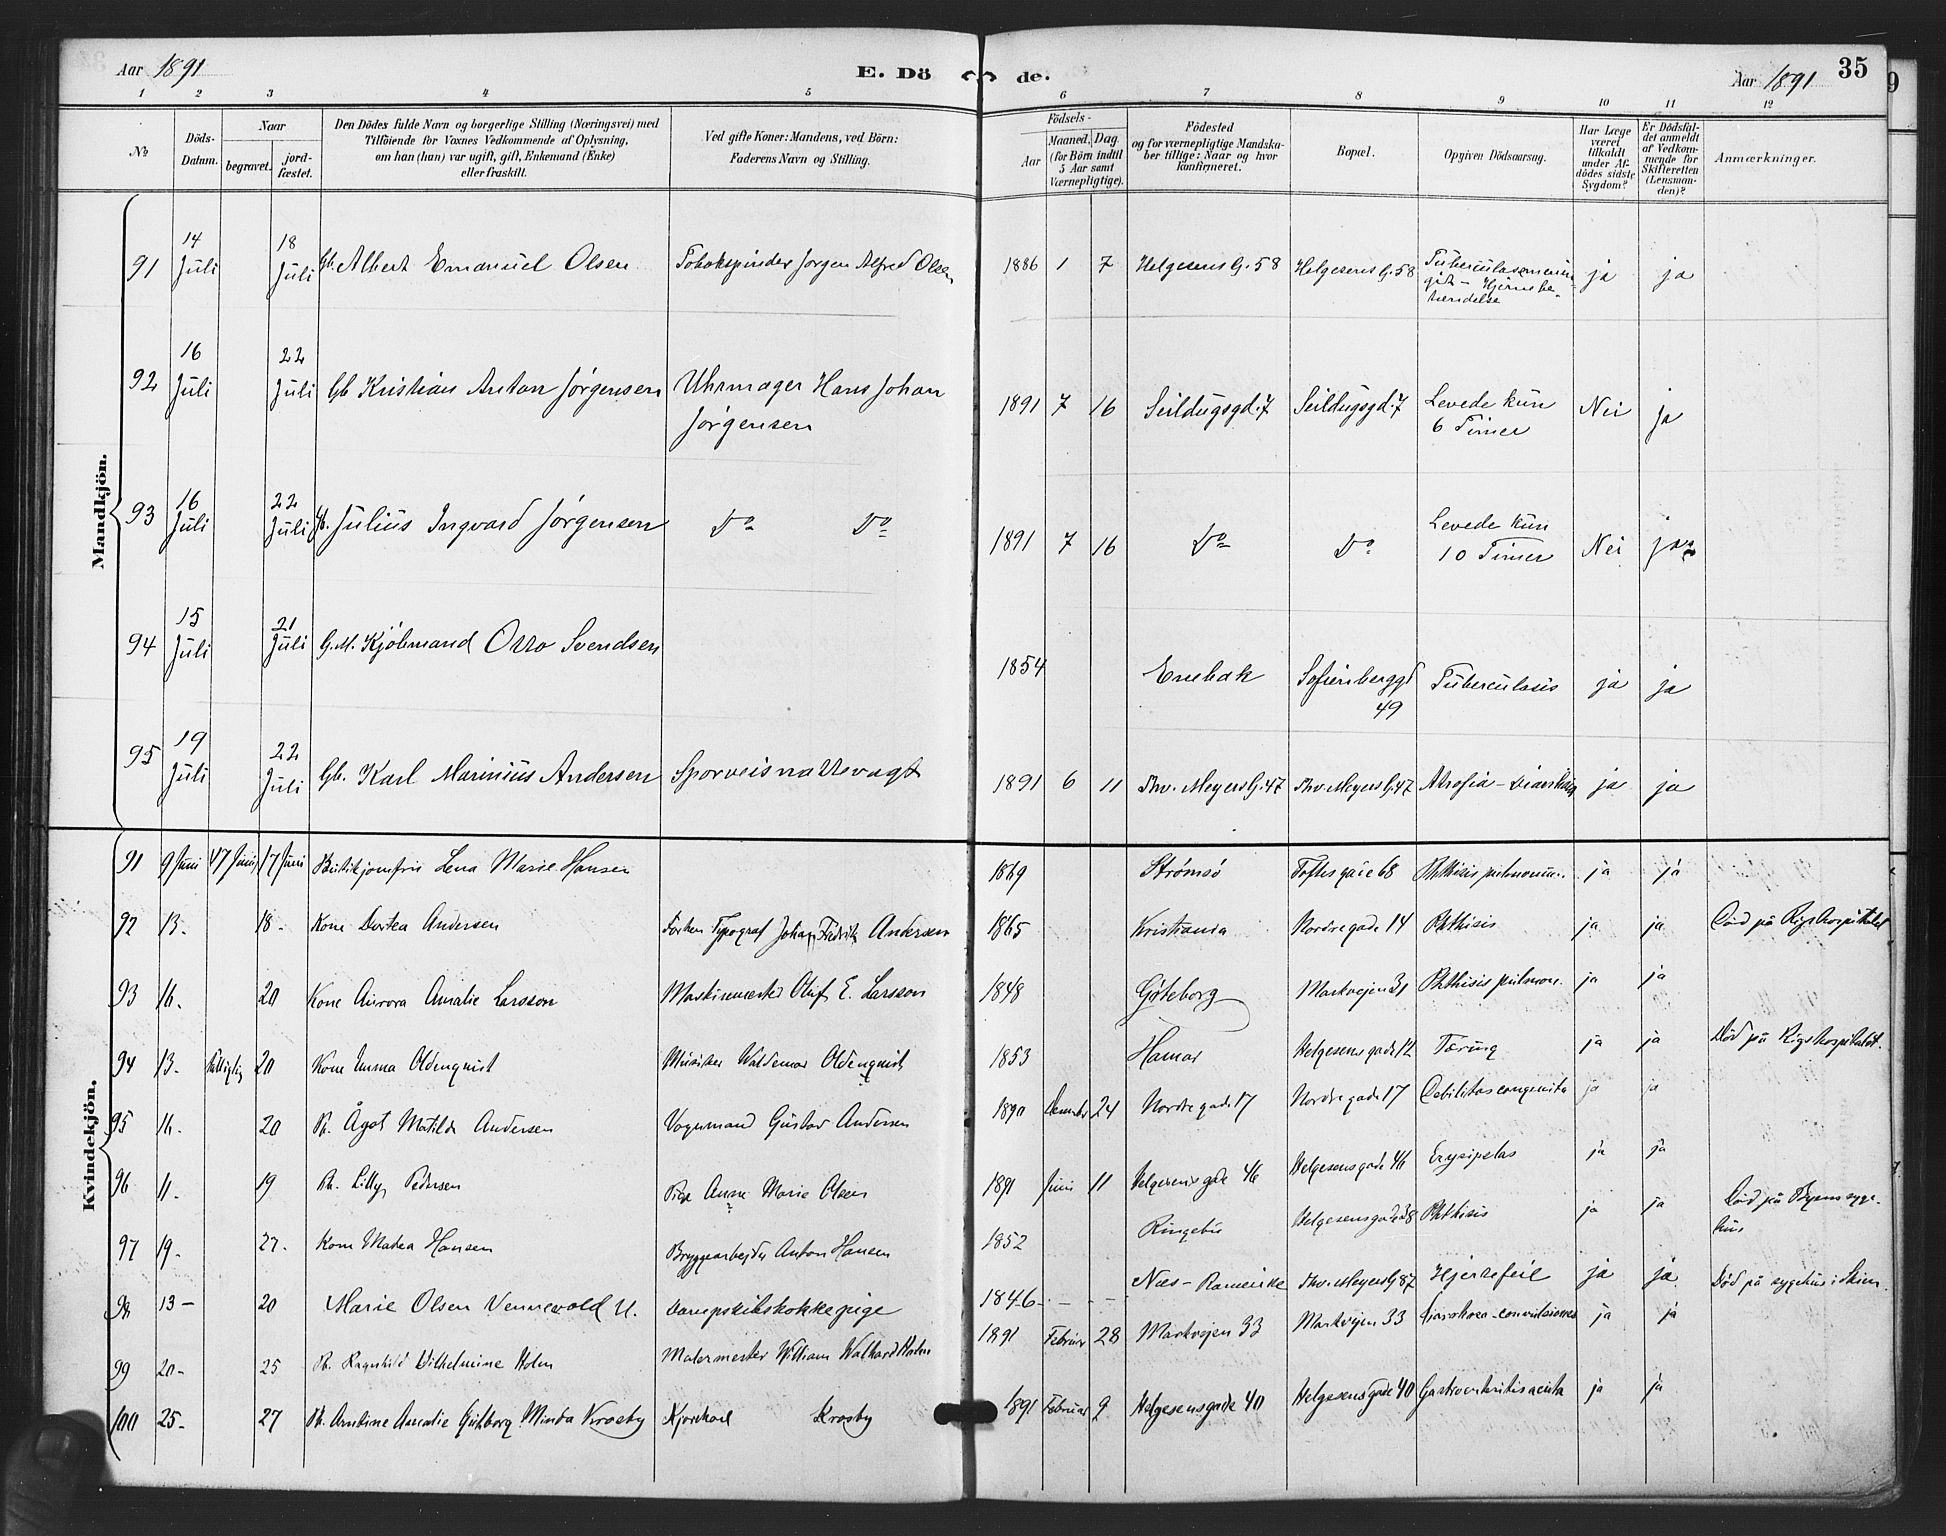 Aar 1891
E. Döde.
Aar 1891
35
1 2 3 4 5 6 7 8 9 10 11 12
No
Döds-Datum.
Naar
begravet.
jord-fæstet.
Den Dödes fulde Navn og borgerlige Stilling (Næringsvei) med
Tilföiende for Voxnes Vedkommende af Oplysning,
om han (hun) var ugift, gift, Enkemand (Enke)
eller fraskilt.
Ved gifte Koner: Mandens, ved Börn:
Faderens Navn og Stilling.
Födsels-
Aar
Maaned. Dag
(for Börn indtil
5 Aar samt
Værnepligtige).
Födested
og for værnepligtige Mandska-
ber tillige: Naar og hvor
konfirmeret.
Bopæl.
Opgiven Dödsaarsag.
Har Læge
været
tilkaldt
under Af-
dödes sidste
Sygdom?
Er Dödsfal-
det anmeldt
af Vedkom-
mende for
Skifteretten
(Lensman-
den)?
Anmærkninger.
Mandkjön.
91 14 Juli 18 Juli Gb. Albert Emanuel Olsen Tobakspinder Jørgen Alfred Olsen 1886 1 7 Helgesens G. 58 Helgesens G. 58 Tuberculøsmenin
git - Hjernebe-
tændelse ja ja
92 16 Juli 22 Juli Gb Kristian Anton Jørgensen Uhrmager Hans Johan
Jørgensen 1891 7 16 Seildugsgd. 7 Seildugsgd. 7 Levede kun
6 Timer Nei ja
93 16 Juli 22 Juli Gb. Julius Ingvard Jørgensen Do Do 1891 7 16 Do Do Levede kun
10 Timer Nei ja
94 15 Juli 21 Juli G.M. Kjøbmand Otto Svendsen 1854 Enebak Sofienberggd
49 Tuberculosis ja ja
95 19 Juli 22 Juli Gb. Karl Marinius Andersen Sporveisnattevagt 1891 6 11 Thv. Meyers G. 47 Thv. Meyers G. 47 Atrofia - ja ja
Kvindekjön.
91 9 Juni 17 Juni 17 Juni Butikjomfru Lena Marie Hansen 1869 Strømsø Toftes gade 68 Phthisis pulmonum. ja ja
92 13. 18. Kone Dortea Andersen Typograf Johan Fredrik Andersen 1865 Kristiania Nordregade 14 Phthisis ja ja Död på Rigshospitalet
93 16. 20 Kone Aurora Amalie Larsson Maskinmester Oluf E. Larsson 1848 Göteborg Markvejen 31 Phthisis pulmon. ja ja
94 13. 20 Kone Emma Oldenquist Musiker Waldemar Oldenquist 1853 Hamar Helgesens gade 12 Tæring ja ja Död på Rigshospitalet.
95 16. 20 Pb. Ågot Matilde Andersen Vognmand Gustav Andersen 1890 December 24 Nordregade 17 Nordregade 17 Debilitas congenita ja ja
96 11. 19 Pb. Lilly Pedersen Pige Anne Marie Olsen 1891 Juni 11 Helgesens gade 46 Helgesens gade 46 Erysipelas ja ja
97 19. 27. Kone Matea Hansen Bryggearbejder Anton Hansen 1852 Ringebu Helgesens gade 28 Phthisis ja ja Död på Byens syge-
hus
98 13 - 20 Marie Olsen Vennevold U. Dampskibskokkepige 1846 - - - Næs - Romerike Thv. Meyers G. 87 Hjertefeil ja ja Död på sygehus i Skien
99 20 - 25 Pb. Ragnhild Vilhelmine Holm Malermester William Holm 1891 Februar 28 Markvejen 33 Markvejen 33 Diarrhoea - convulsiones ja ja
100 25 - 27 Pb. Amalie Minda Krosby Krosby 1891 Februar 9 Helgesensgade 40 Helgesens gade 40 Gastroenteritis acuta ja ja